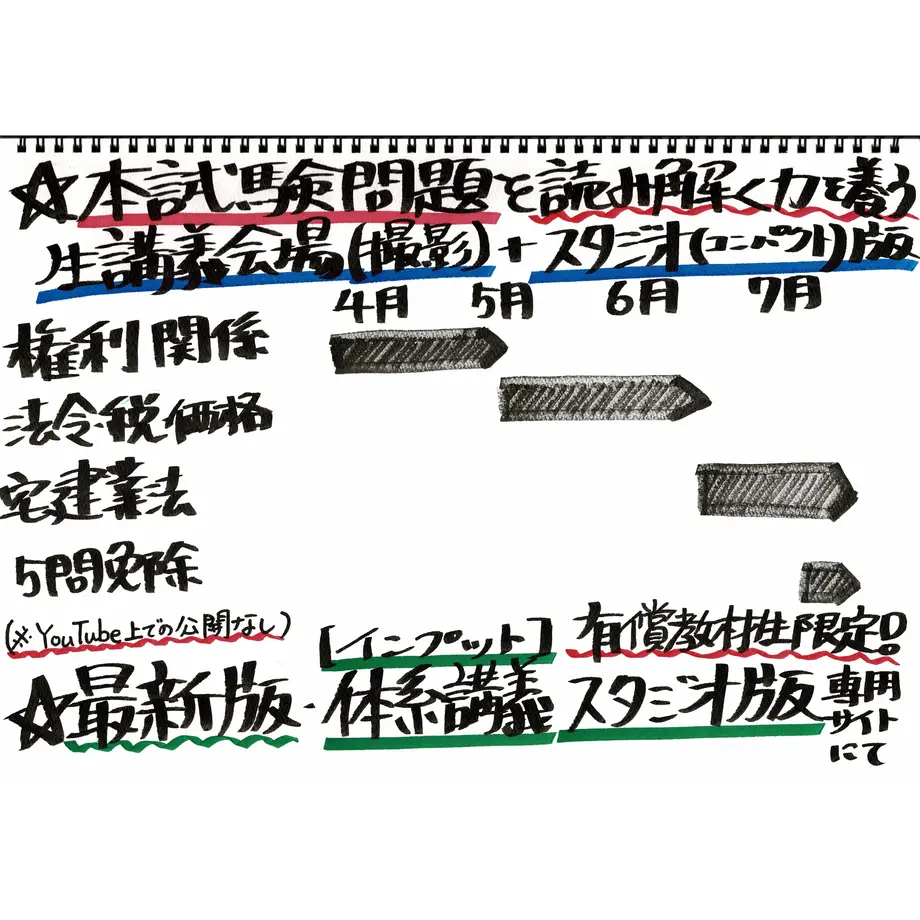 ☆本試験問題を読み解く力を養う
生講義会場(撮影)+スタジオ(コンパクト)版
4月 5月 6月 7月
権利関係
法令・税・価格
宅建業法
5問免除
(※YouTube上での公開なし)
[インプット] 有償教材生限定!!
☆最新版・体系講義 スタジオ版 専用
サイト
にて